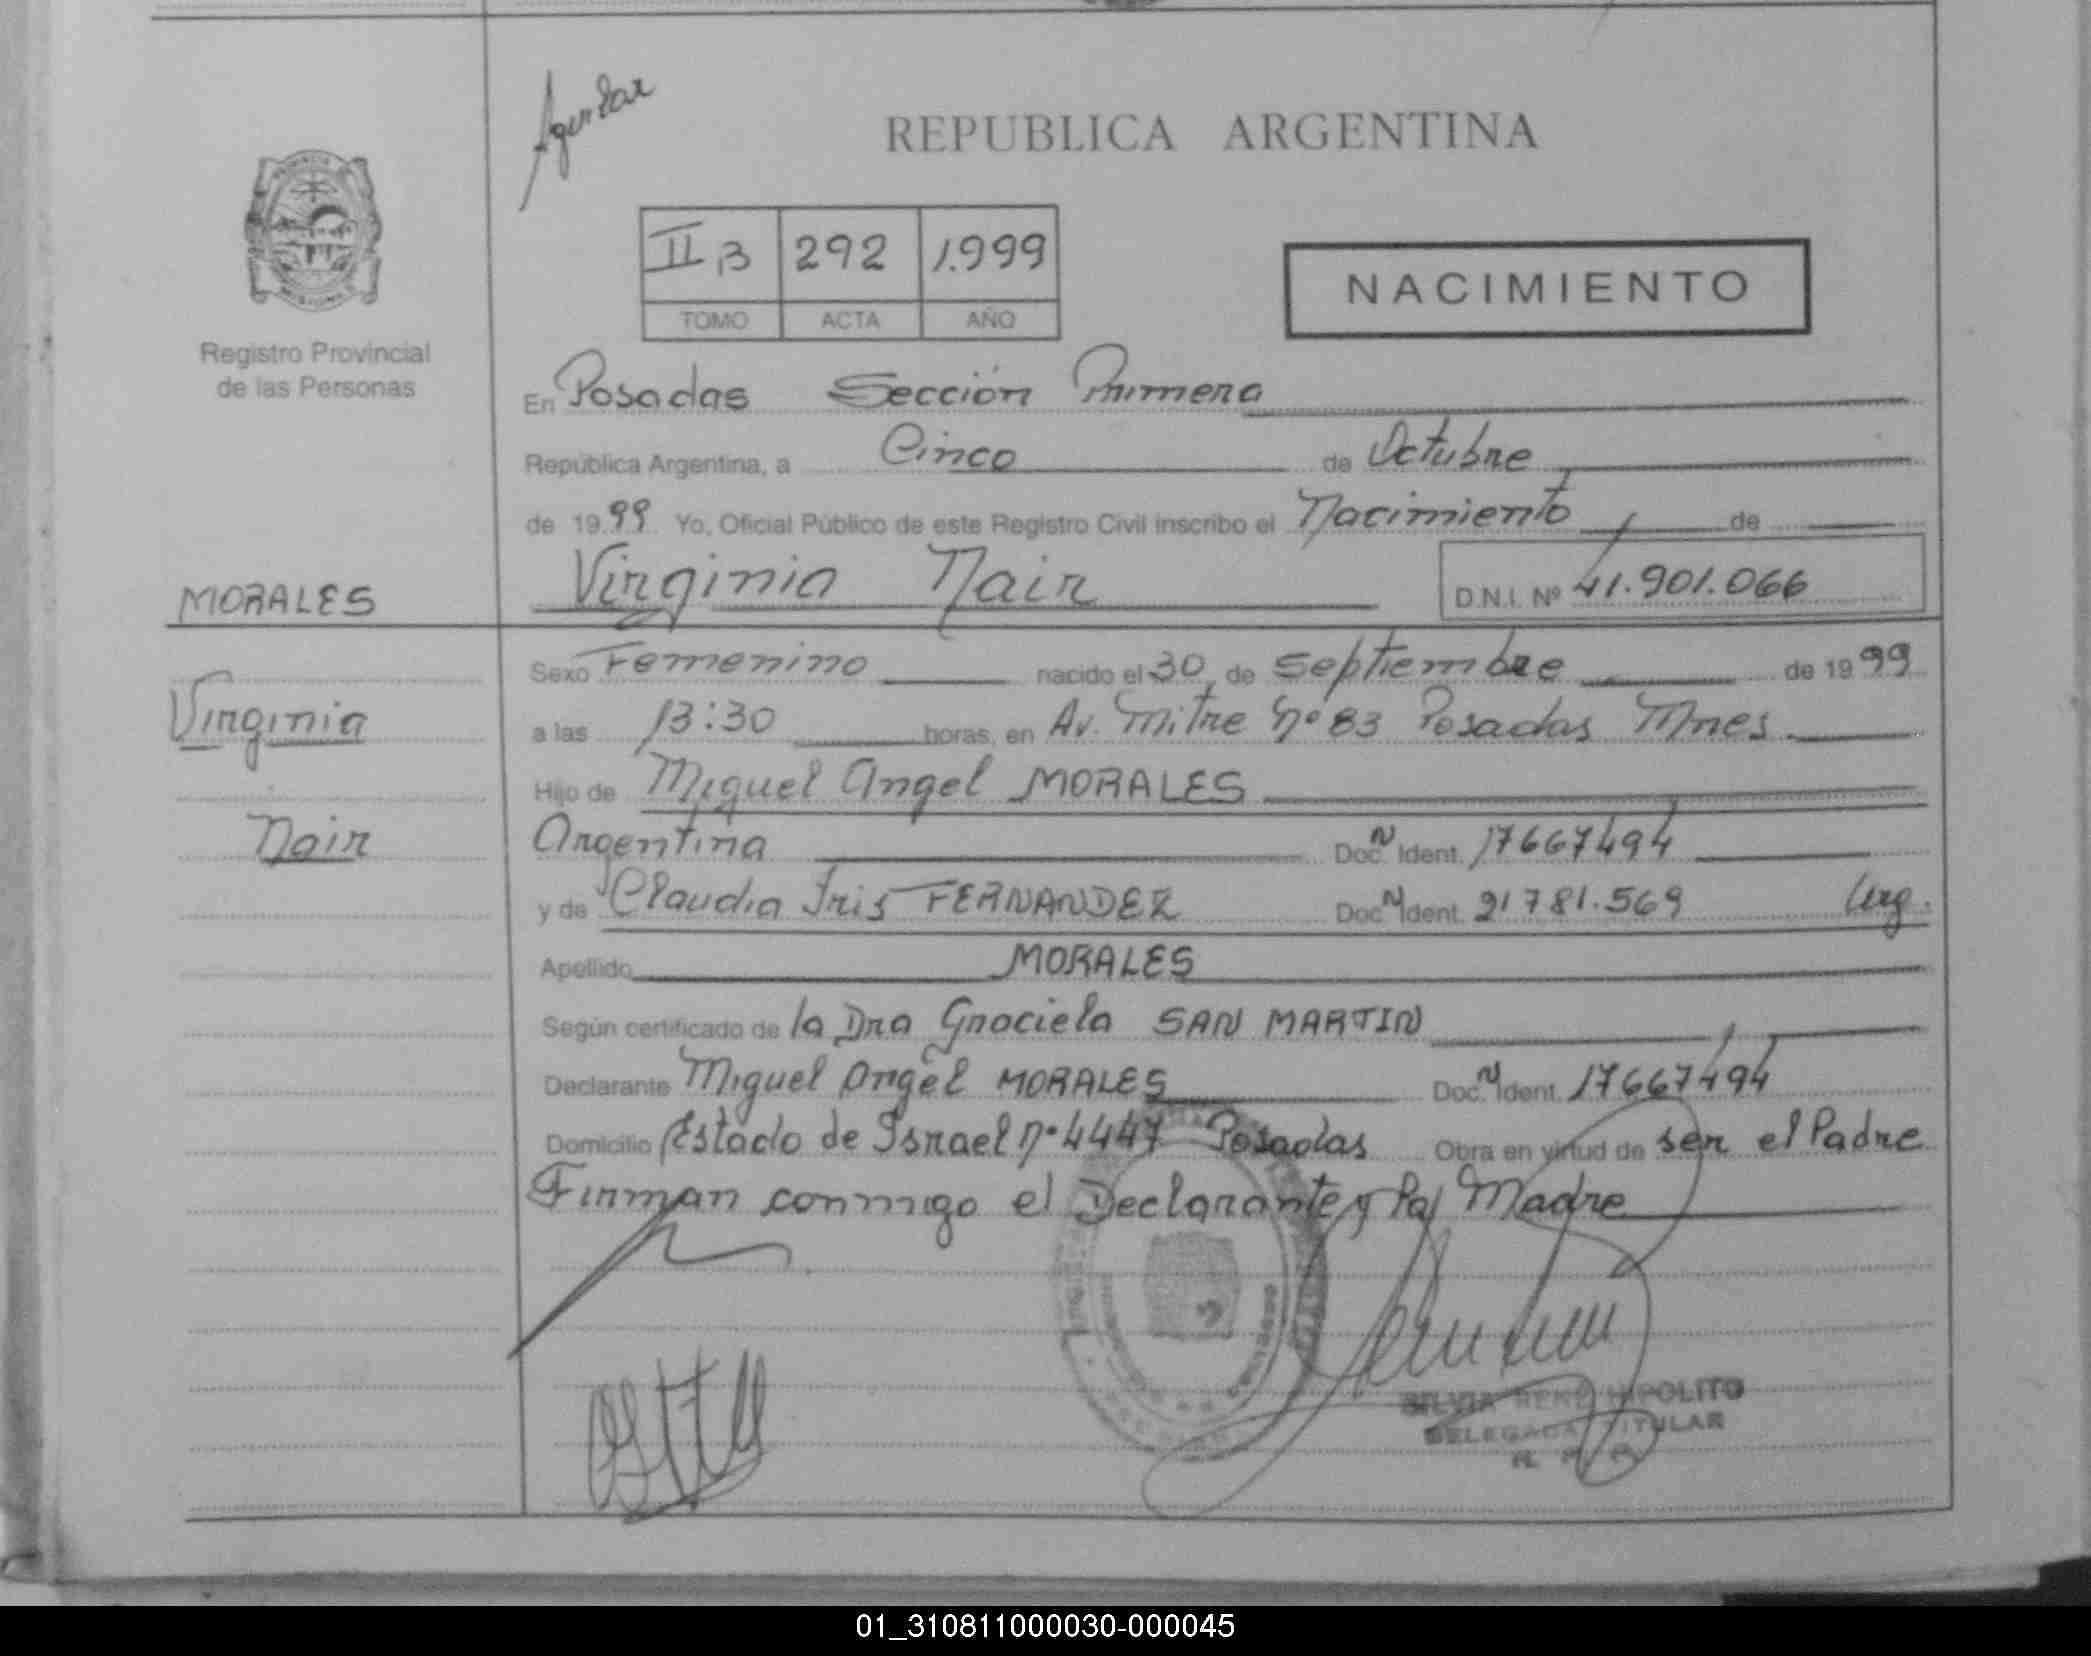 Aguilar
REPUBLICA ARGENTINA
II B 292 1.999
TOMO ACTA AÑO
NACIMIENTO
Registro Provincial
de las Personas
En Posadas Sección Primera
República Argentina, a Cinco de Octubre
de 1999 Yo, Oficial Público de este Registro Civil inscribo el Nacimiento de
MORALES
Virginia Nair
D.N.I. Nº 41.901.066
Virginia
Nair
Sexo Femenino nacido el 30 de Septiembre de 1999
a las 13:30 horas, en Av. Mitre Nº 83 Posadas Mnes
Hijo de Miguel Angel MORALES
Argentina Doc. N Ident. 17667494
y de Claudia Iris FERNANDEZ Doc. N Ident. 21781.569 Arg.
Apellido MORALES
Según certificado de la Dra Graciela SAN MARTIN
Declarante Miguel Angel MORALES Doc. N Ident. 17667494
Domicilio Estado de Israel Nº 4447 Posadas Obra en virtud de ser el Padre
Firman conmigo el Declarante y la Madre
SILVIA RENE HIPOLITO
DELEGADA TITULAR
R. P. P.
01_310811000030-000045